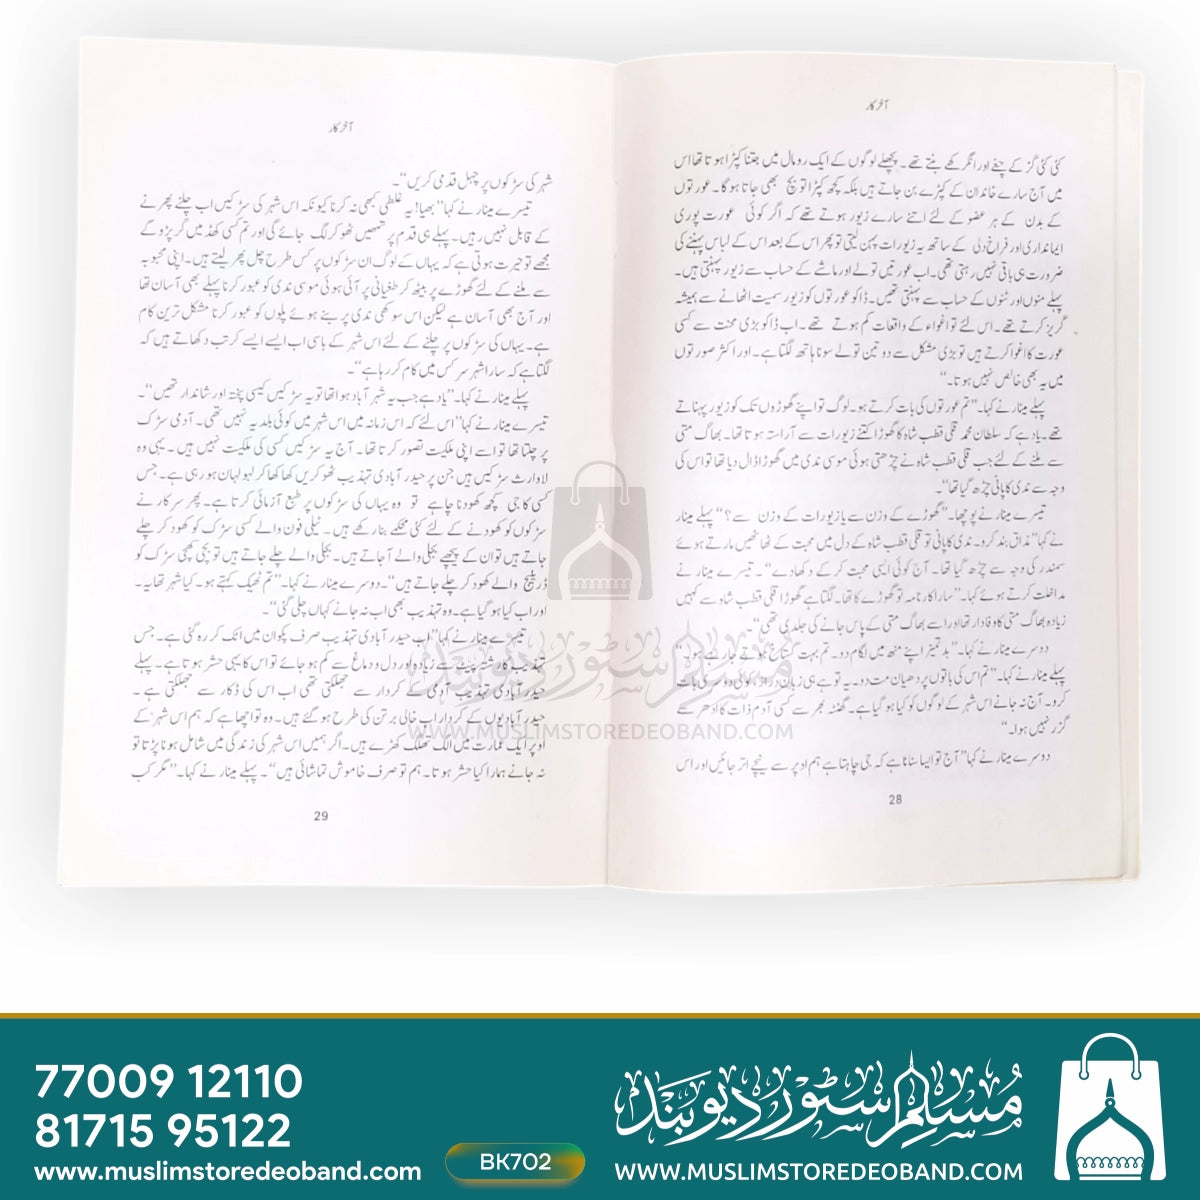 آخر کار
کئی کئی گز کے چغے اور انگرکھے بنتے تھے۔ پچھلے لوگوں کے ایک رومال میں جتنا کپڑا ہوتا تھا اس
میں آج سارے خاندان کے کپڑے بن جاتے ہیں بلکہ کچھ کپڑا تو بچ بھی جاتا ہوگا۔ عورتوں
کے بدن کے ہر عضو کے لئے اتنے سارے زیور ہوتے تھے کہ اگر کوئی عورت پوری
ایمانداری اور فراخ دلی کے ساتھ یہ زیورات پہن لیتی تو پھر اس کے بعد اس کے لباس پہننے کی
ضرورت ہی باقی نہیں رہتی تھی۔ اب عورتیں تولے اور ماشے کے حساب سے زیور پہنتی ہیں۔
پہلے منوں اور ٹنوں کے حساب سے پہنتی تھیں۔ ڈاکو عورتوں کو زیور سمیت اٹھانے سے ہمیشہ
گریز کرتے تھے۔ اس لئے تو اغواء کے واقعات کم ہوتے تھے۔ اب ڈاکو بڑی محنت سے کسی
عورت کا اغوا کرتے ہیں تو بڑی مشکل سے دو تین تولے سونا ہاتھ لگتا ہے۔ اور اکثر صورتوں
میں یہ بھی خالص نہیں ہوتا۔“
پہلے مینار نے کہا۔ ”تم عورتوں کی بات کرتے ہو۔ لوگ تو اپنے گھوڑوں تک کو زیور پہناتے
تھے۔ یاد ہے کہ سلطان محمد قلی قطب شاہ کا گھوڑا کتنے زیورات سے آراستہ ہوتا تھا۔ بھاگ متی
سے ملنے کے لئے جب قلی قطب شاہ نے چڑھتی ہوئی موسی ندی میں گھوڑا ڈال دیا تھا تو اس کی
وجہ سے ندی کا پانی چڑھ گیا تھا“۔
تیسرے مینار نے پوچھا۔ ”گھوڑے کے وزن سے یا زیورات کے وزن سے؟“ پہلے مینار
نے کہا ”مذاق بند کرو۔ ندی کا پانی تو قلی قطب شاہ کے دل میں محبت کے ٹھاٹھیں مارتے ہوئے
سمندر کی وجہ سے چڑھ گیا تھا۔ آج کوئی ایسی محبت کر کے دکھا دے“۔ تیسرے مینار نے
مداخلت کرتے ہوئے کہا۔ ”سارا کارنامہ تو گھوڑے کا تھا۔ لگتا ہے گھوڑا قلی قطب شاہ سے کہیں
زیادہ بھاگ متی کا وفادار تھا اور اسے بھاگ متی کے پاس جانے کی جلدی تھی“۔
دوسرے مینار نے کہا۔ ”بدتمیز اپنے منھ میں لگام دو۔ تم بہت گستاخ ہوتے جا رہے ہو۔“
پہلے مینار نے کہا۔ ”تم اس کی باتوں پر دھیان مت دو۔ یہ تو ہے ہی زبان دراز۔ کوئی دوسری بات
کرو۔ آج نہ جانے اس شہر کے لوگوں کو کیا ہو گیا ہے۔ گھنٹہ بھر سے کسی آدم ذات کا ادھر سے
گزر نہیں ہوا۔“
دوسرے مینار نے کہا ”آج تو ایسا سناٹا ہے کہ جی چاہتا ہے ہم اوپر سے نیچے اتر جائیں اور اس
28
آخر کار
شہر کی سڑکوں پر چہل قدمی کریں“۔
تیسرے مینار نے کہا ”بھیا! یہ غلطی کبھی نہ کرنا کیونکہ اس شہر کی سڑکیں اب چلنے پھرنے
کے قابل نہیں رہیں۔ پہلے ہی قدم پر تمھیں ٹھوکر لگ جائے گی اور تم کسی کھڈ میں گر پڑو گے
مجھے تو حیرت ہوتی ہے کہ یہاں کے لوگ ان سڑکوں پر کس طرح چل پھر لیتے ہیں۔ اپنی محبوبہ
سے ملنے کے لئے گھوڑے پر بیٹھ کر طغیانی پر آئی ہوئی موسی ندی کو عبور کرنا پہلے بھی آسان تھا
اور آج بھی آسان ہے لیکن اس سوکھی ندی پر بنے ہوئے پلوں کو عبور کرنا مشکل ترین کام
ہے۔ یہاں کی سڑکوں پر چلنے کے لئے اس شہر کے باسی اب ایسے ایسے کرتب دکھاتے ہیں کہ
لگتا ہے کہ سارا شہر سرکس میں کام کر رہا ہے“۔
پہلے مینار نے کہا۔ ”یاد ہے جب یہ شہر آباد ہوا تھا تو یہ سڑکیں کیسی پختہ اور شاندار تھیں“۔
تیسرے مینار نے کہا ”اس لئے کہ اس زمانہ میں اس شہر میں کوئی بلدیہ نہیں تھی۔ آدمی سڑک
پر چلتا تھا تو اسے اپنی ملکیت تصور کرتا تھا۔ آج یہ سڑکیں کسی کی ملکیت نہیں ہیں۔ یہی وہ
لاوارث سڑکیں ہیں جن پر حیدرآبادی تہذیب ٹھوکریں کھا کھا کر لہولہان ہو رہی ہے۔ جس
کسی کا جی کچھ کھودنا چاہے تو وہ یہاں کی سڑکوں پر طبع آزمائی کرتا ہے۔ پھر سرکار نے
سڑکوں کو کھودنے کے لئے کئی محکمے بنا رکھے ہیں۔ ٹیلی فون والے کسی سڑک کو کھود کر چلے
جاتے ہیں تو ان کے پیچھے بجلی والے آ جاتے ہیں۔ بجلی والے چلے جاتے ہیں تو بچی کھچی سڑک کو
ڈرینیج والے کھود کر چلے جاتے ہیں“۔ دوسرے مینار نے کہا۔ ”تم ٹھیک کہتے ہو۔ کیا شہر تھا یہ۔
اور اب کیا ہو گیا ہے۔ وہ تہذیب بھی اب نہ جانے کہاں چلی گئی“۔
تیسرے مینار نے کہا ”اب حیدرآبادی تہذیب صرف پکوان میں اٹک کر رہ گئی ہے۔ جس
تہذیب کا رشتہ پیٹ سے زیادہ اور دل و دماغ سے کم ہو جائے تو اس کا یہی حشر ہوتا ہے۔ پہلے
حیدرآبادی تہذیب آدمی کے کردار سے جھلکتی تھی اب اس کی ڈکار سے جھلکتی ہے۔
حیدرآبادیوں کے کردار اب خالی برتن کی طرح ہو گئے ہیں۔ وہ تو اچھا ہے کہ ہم اس شہر کے
اوپر ایک عمارت میں الگ تھلگ کھڑے ہیں۔ اگر ہمیں اس شہر کی زندگی میں شامل ہونا پڑتا تو
نہ جانے ہمارا کیا حشر ہوتا۔ ہم تو صرف خاموش تماشائی ہیں“۔ پہلے مینار نے کہا۔ ”مگر کب
29
مسلم سٹور دیوبند
WWW.MUSLIMSTOREDEOBAND.COM
77009 12110
81715 95122
www.muslimstoredeoband.com
BK702
مسلم سٹور دیوبند
WWW.MUSLIMSTOREDEOBAND.COM